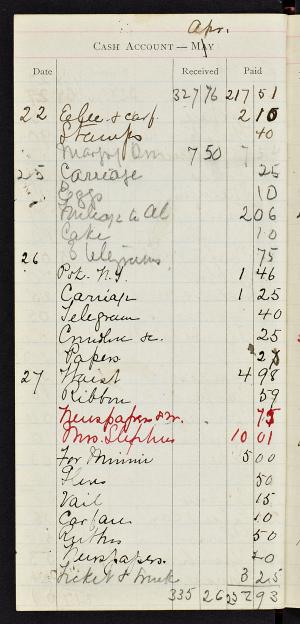 Apr.
CASH ACCOUNT — MAY
Date Received Paid
327 76 217 51
22 scarf. 2 10
Stamps 40
7 50
25 Carriage 25
Eggs 10
to Al 2 06
Cake 10
Telegrams 75
26 N.Y. 1 46
Carriage 1 25
Telegram 40
25
Papers
27 Waist 4 98
Ribbon 59
Newspapers 75
Mrs. Stephens 10 01
For Minnie 5 00
50
Vail 15
Car fare 10
50
Newspapers.
Ticket & trunk 3 25
335 26